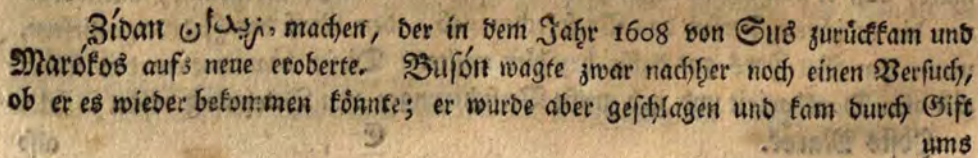 Zídan زيدان, machen, der in dem Jahr 1608 von Sus zurückkam und
Marókos aufs neue eroberte. Busón wagte zwar nachher noch einen Versuch,
ob er es wieder bekommen könnte; er wurde aber geschlagen und kam durch Gift
ums